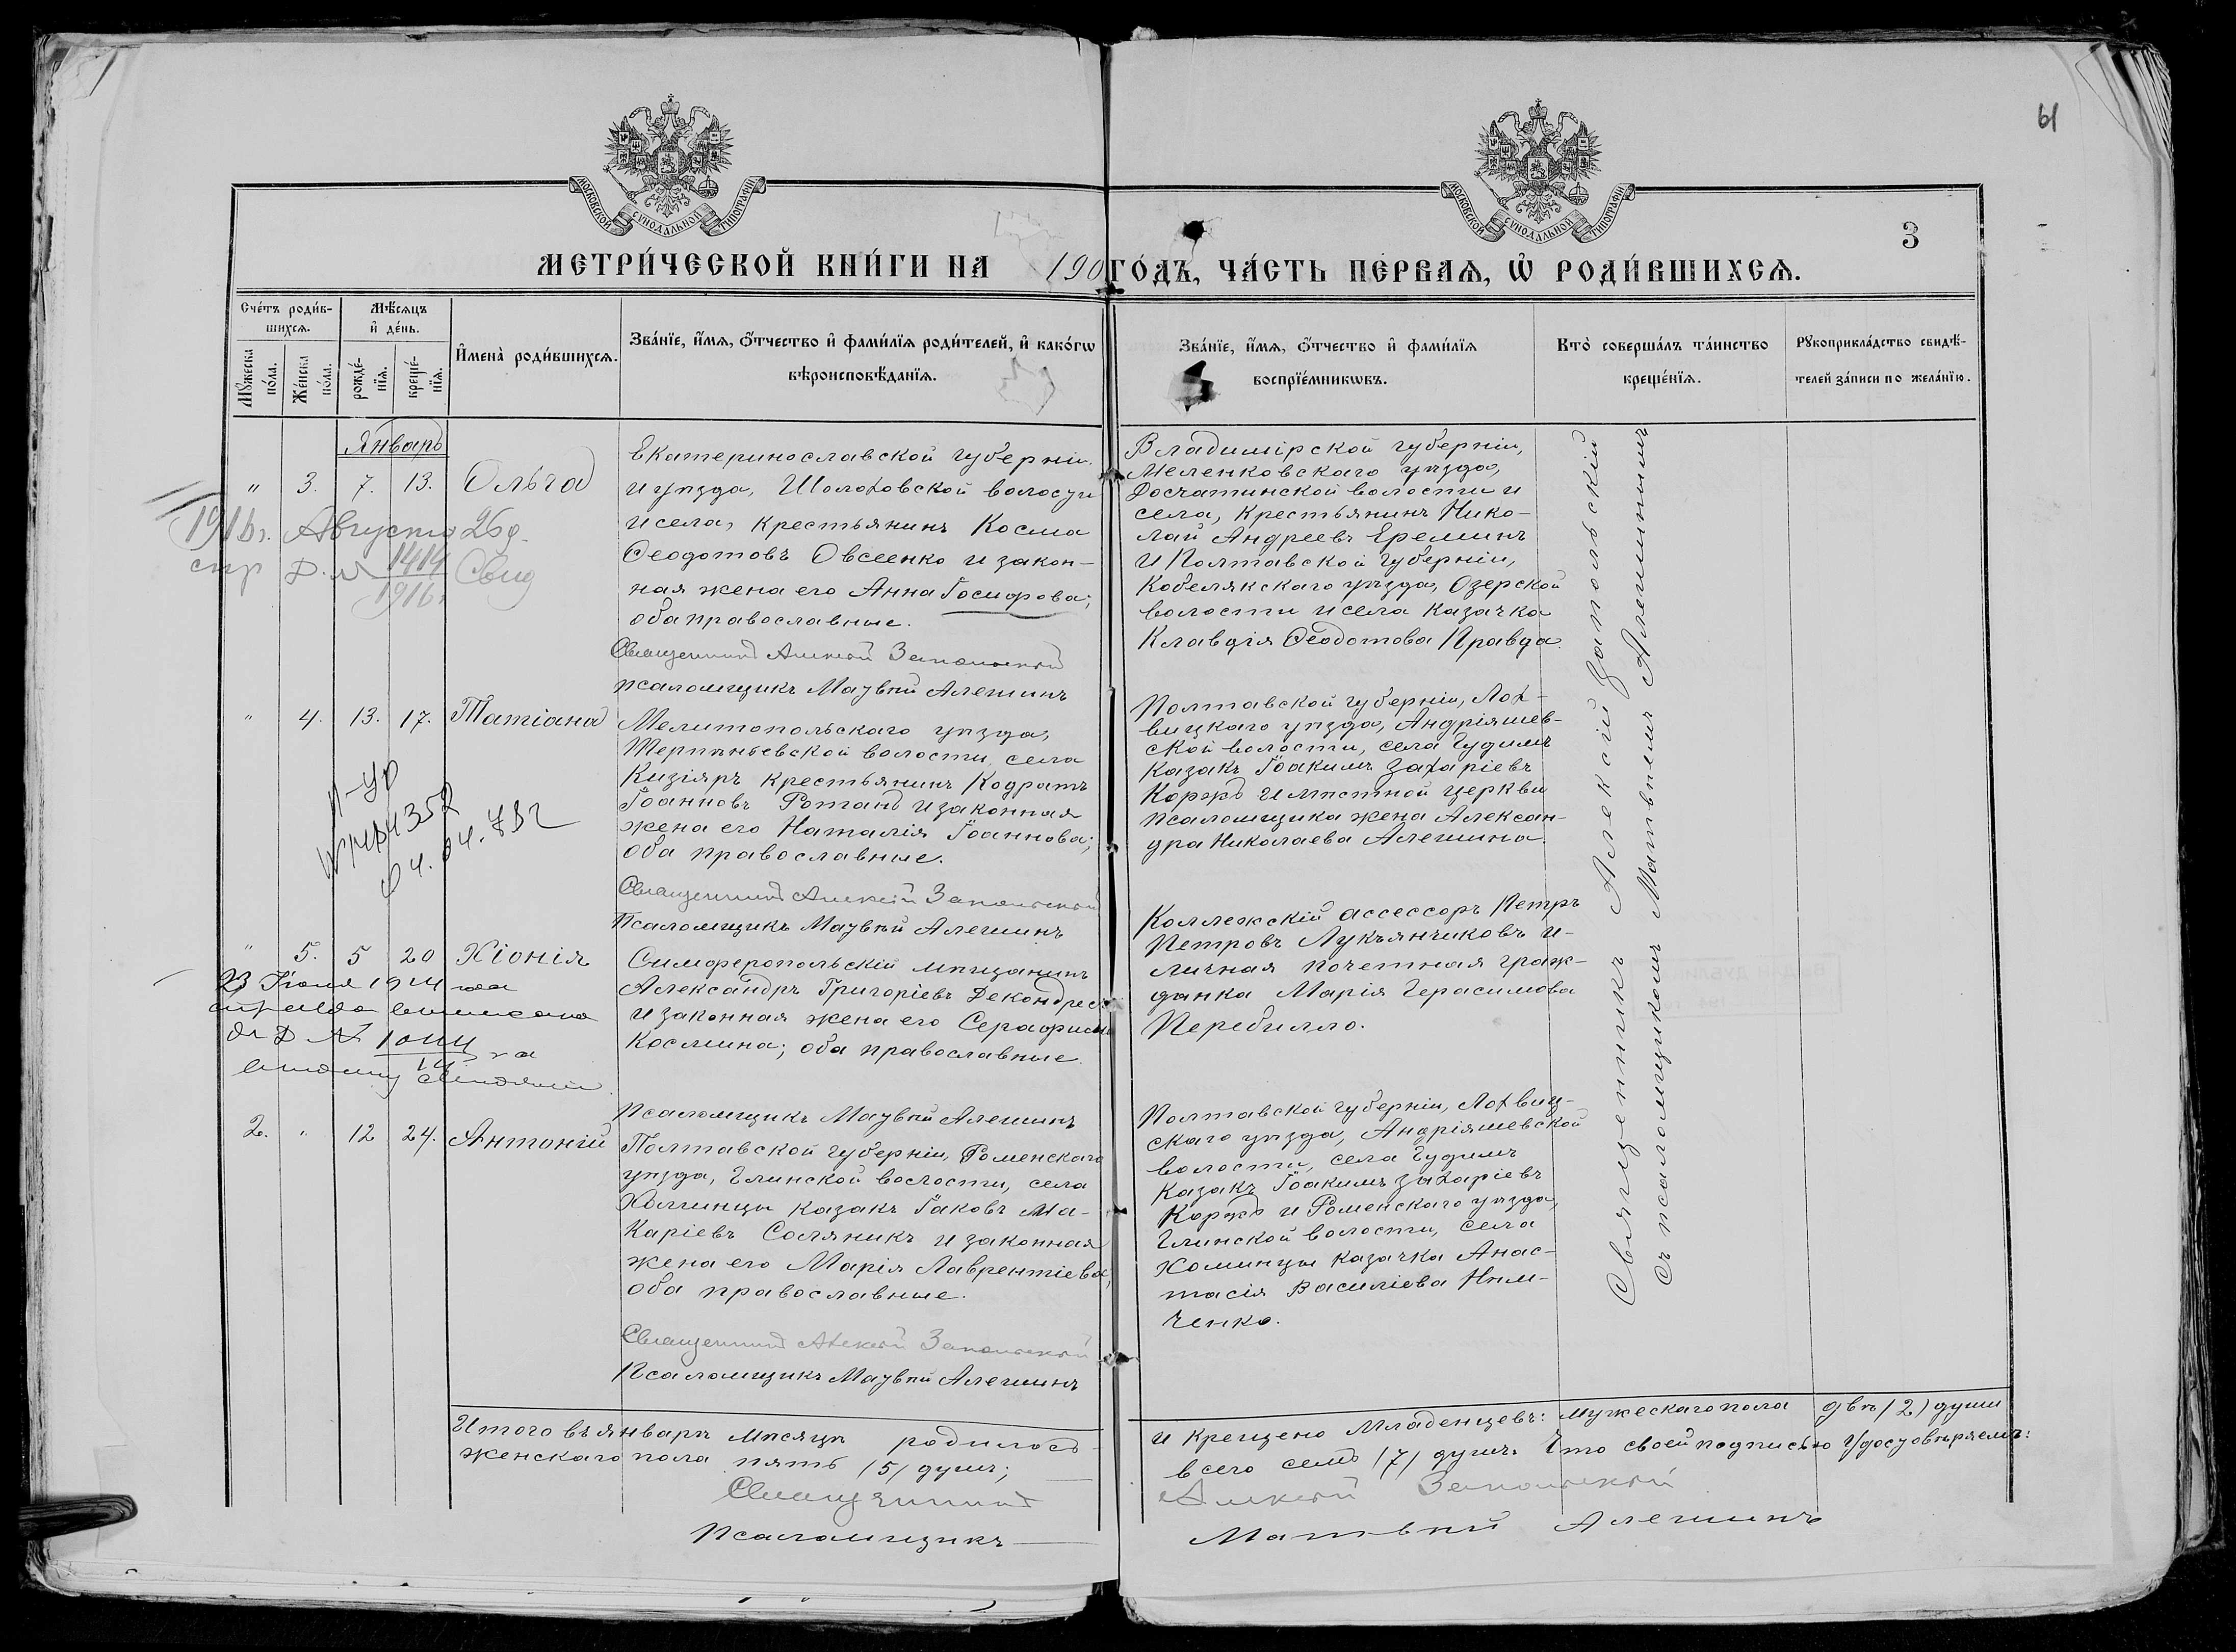 61
МОСКОВСКОЙ СУНОДАЛЬНОЙ ТИПОГРАФІИ
МОСКОВСКОЙ СУНОДАЛЬНОЙ ТИПОГРАФІИ
3
МЕТРИ́ЧЕСКОЙ КНИ́ГИ НА 190 ГО́ДЪ, ЧА́СТЬ ПЕ́РВАѦ, Ѡ РОДИ́ВШИХСѦ.
Сче́тъ роди́в-
шихсѧ.
Мꙋ́жеска
по́ла.
Же́нска
по́ла.
Мѣ́сѧцъ
и҆ де́нь.
рожде́-
нїѧ.
креще́-
нїѧ.
И҆мена̀ роди́вшихсѧ.
Зва́нїе, и҆́мѧ, ѻ҆́тчество и҆ фами́лїѧ роди́телей, и҆ како́гѡ
вѣроисповѣ́данїѧ.
Зва́нїе, и҆́мѧ, ѻ҆́тчество и҆ фами́лїѧ
воспрїе́мникѡвъ.
Кто̀ соверша́лъ та́инство
креще́нїѧ.
Рꙋкоприкла́дство свидѣ́-
телей за́писи по жела́нїю.
Январь
" 3. 7. 13. Ольга
1916 г. Августа 26 д.
спр Д. № 1414
1916 г.
Екатеринославской губерніи
и уѣзда, Шолоховской волости
и села, крестьянинъ Косма
Ѳеодотовъ Овсеенко и закон-
ная жена его Анна Іосифова;
оба православные.
Священникъ Алексій Запольскій
псаломщикъ Матвѣй Алешинъ
Владимірской губерніи,
Меленковскаго уѣзда,
Досчатинской волости и
села, крестьянинъ Нико-
лай Андреевъ Ереминъ
и Полтавской губерніи,
Кобелякскаго уѣзда, Озерской
волости и села казачка
Клавдія Ѳеодотова Правда.
" 4. 13. 17. Татіана
Мелитопольскаго уѣзда,
Терпѣньевской волости, села
Кизіяръ крестьянинъ Кодратъ
Іоанновъ Ротань и законная
жена его Наталія Іоаннова;
оба православные.
Священникъ Алексій Запольскій
Псаломщикъ Матвѣй Алешинъ
Полтавской губерніи, Лох-
вицкаго уѣзда, Андріяшев-
ской волости, села Гудимъ
казакъ Іоакимъ Захаріевъ
Коржъ и мѣстной церкви
псаломщика жена Алексан-
дра Николаева Алешина.
" 5. 5 20 Хіонія
23 Іюня 1914 года
Симферопольскій мѣщанинъ
Александръ Григоріевъ
и законная жена его Серафима
Космина; оба православные
псаломщикъ Матвѣй Алешинъ
Коллежскій ассессоръ Петръ
Петровъ Лукьянчиковъ и
личная почетная граж-
данка Марія Герасимова
Перебилло.
2. " 12 24. Антоній
Полтавской губерніи, Роменскаго
уѣзда, Глинской волости, села
Хоминцы казакъ Іаковъ Ма-
каріевъ Соляникъ и законная
жена его Марія Лаврентіева,
оба православные.
Священникъ Алексій Запольскій
Псаломщикъ Матвѣй Алешинъ
Полтавской губерніи, Лохвиц-
скаго уѣзда, Андріяшевской
волости, села Гудимъ
казакъ Іоакимъ Захаріевъ
Коржъ и Роменскаго уѣзда,
Глинской волости, села
Хоминцы казачка Анас-
тасія Василіева Ним-
ченко.
Священникъ Алексій Запольскій
съ псаломщикомъ Матвѣемъ Алешинымъ
Итого въ январѣ мѣсяцѣ родилось
и крещено младенцевъ: мужескаго пола двѣ (2) души
женскаго пола пять (5) душъ;
всего семь (7) душъ. Что своей подписью удостовѣряемъ:
Священникъ Алексій Запольскій
Псаломщикъ Матвѣй Алешинъ